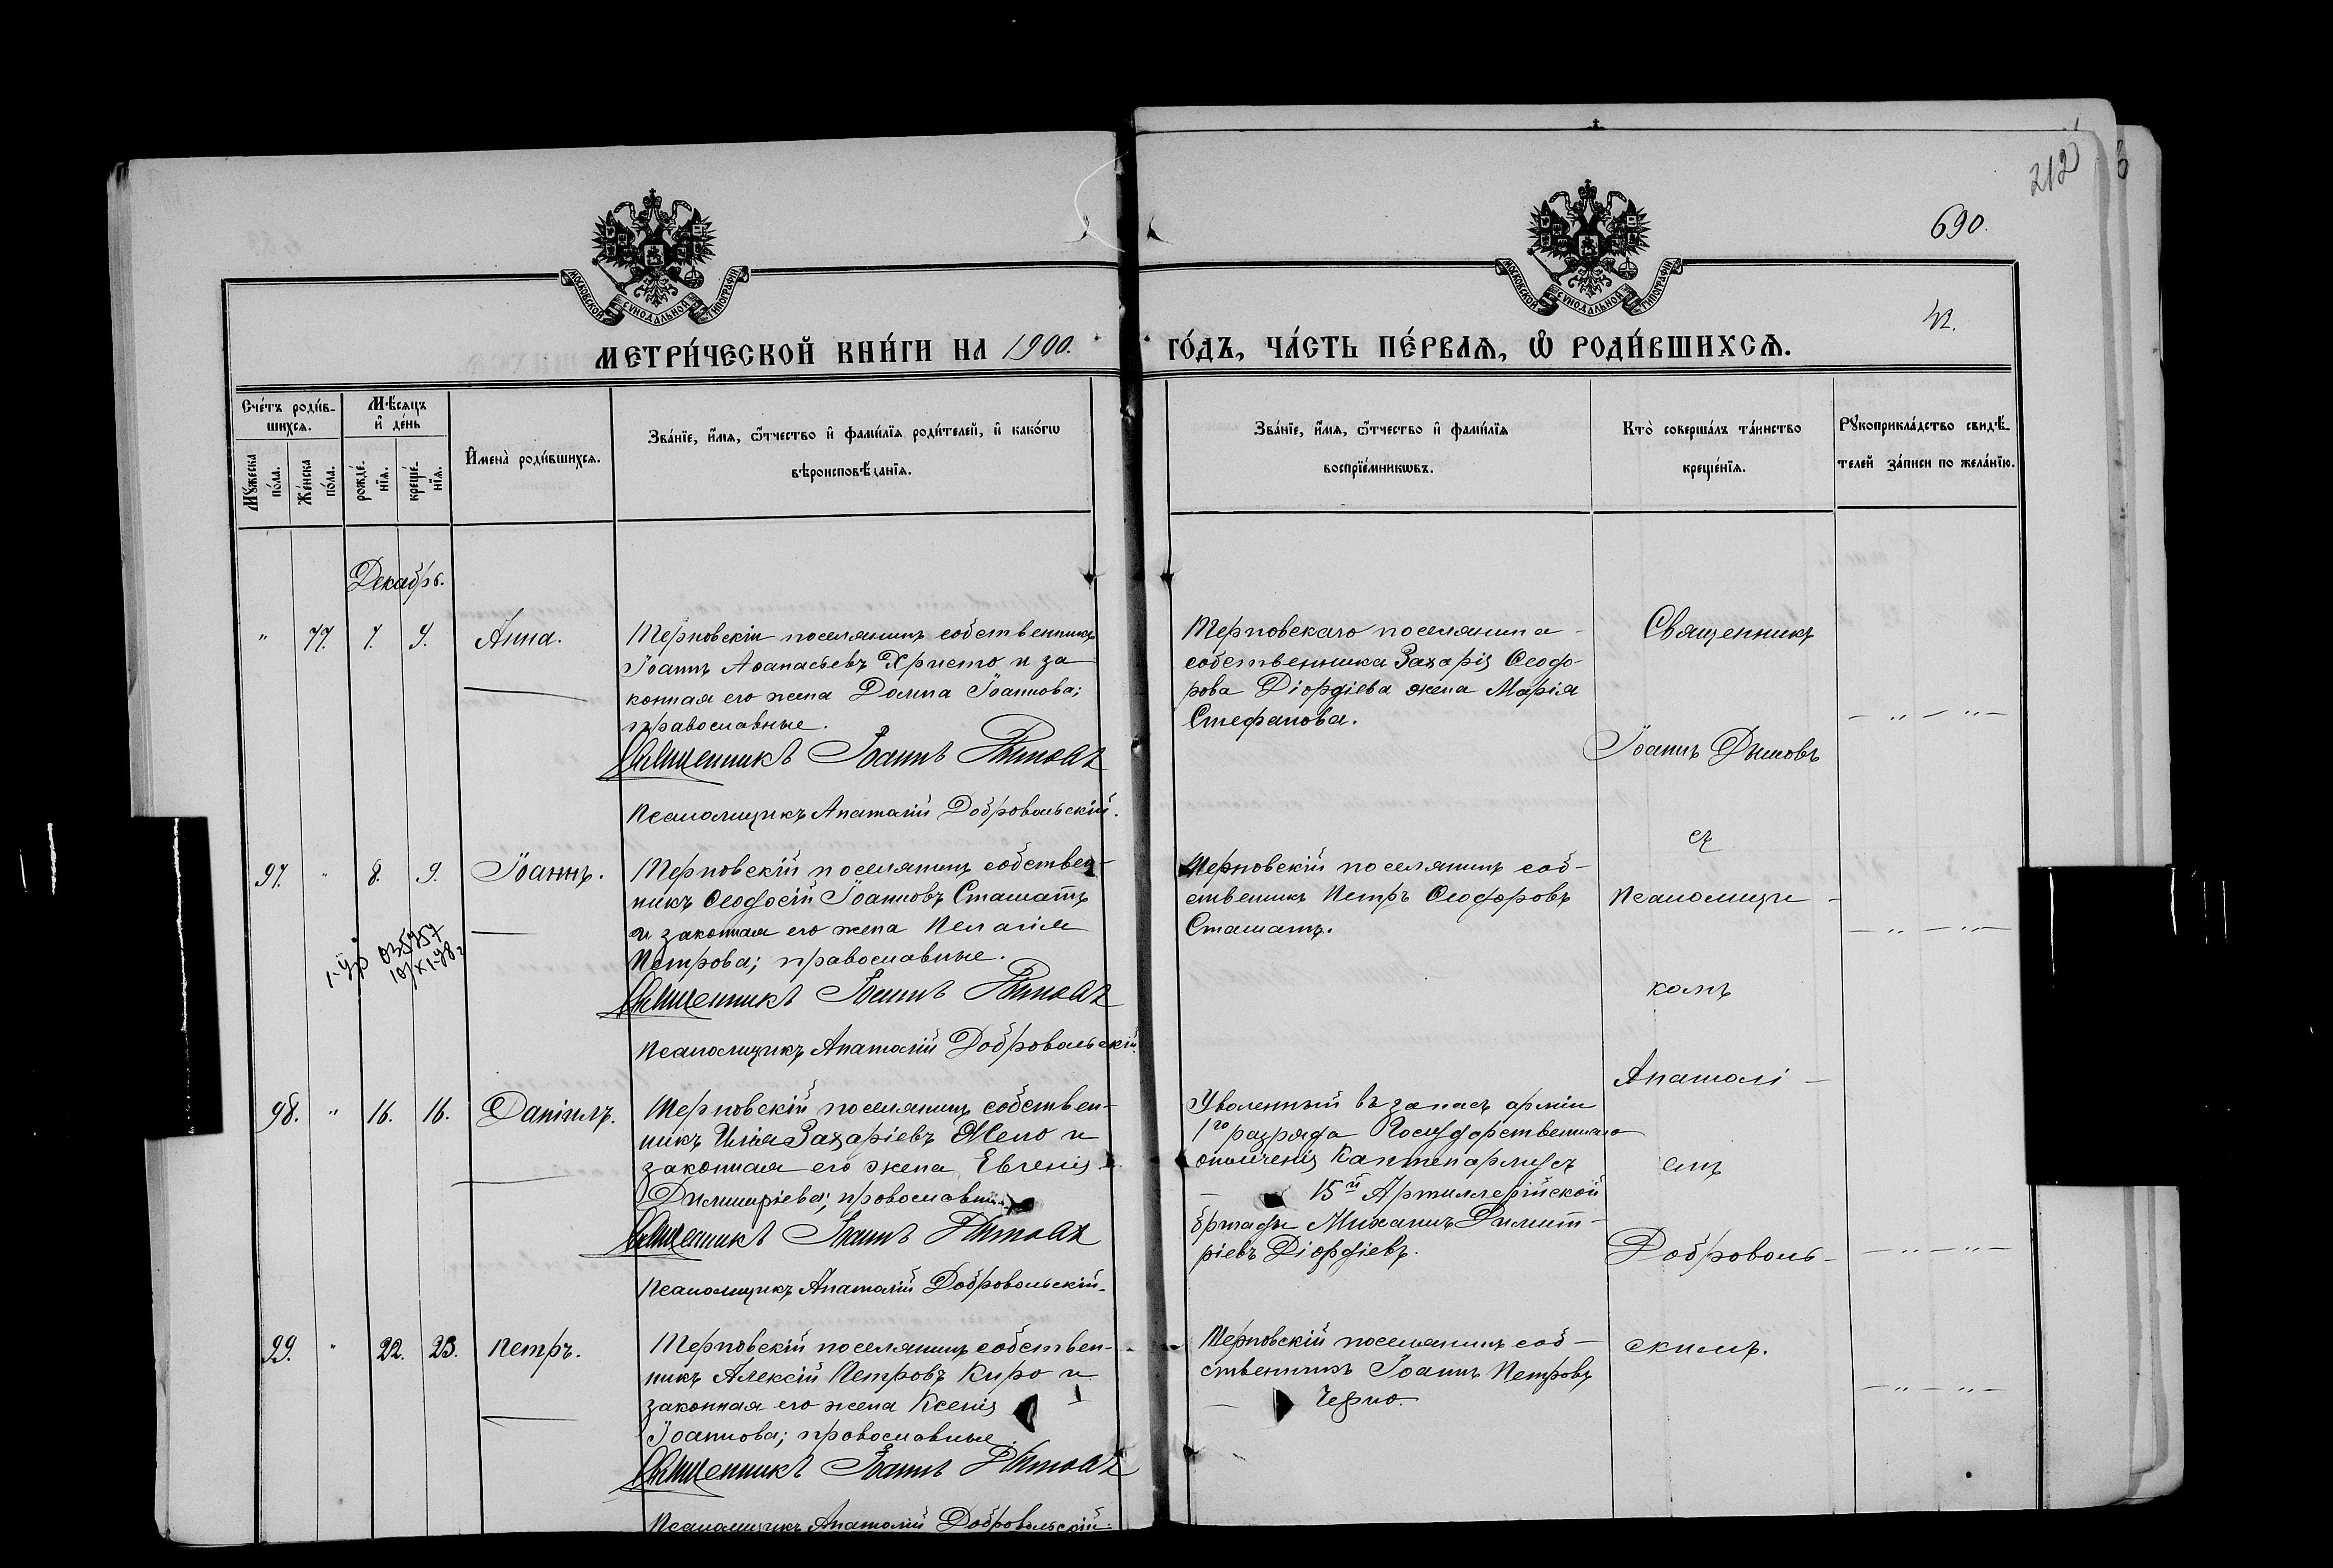 212
690.
МОСКОВСКОЙ СѴНОДАЛЬНОЙ ТИПОГРАФІИ
МОСКОВСКОЙ СѴНОДАЛЬНОЙ ТИПОГРАФІИ
42.
МЕТРИ́ЧЕСКОЙ КНИ́ГИ НА 1900. ГО́ДЪ, ЧА́СТЬ ПЕ́РВАѦ, Ѡ҆ РОДИ́ВШИХСѦ.
Сче́тъ роди́в-
шихсѧ.
Мѣ́сѧцъ
и҆ де́нь
Мꙋ́жеска
по́ла.
Же́нска
по́ла.
рожде́-
нїѧ.
креще́-
нїѧ.
И҆мена̀ роди́вшихсѧ.
Зва́нїе, и҆́мѧ, ѻ҆́тчество и҆ фами́лїѧ роди́телей, и҆ како́гѡ
вѣроисповѣ́данїѧ.
Зва́нїе, и҆́мѧ, ѻ҆́тчество и҆ фами́лїѧ
воспрїе́мникѡвъ.
Кто̀ соверша́лъ та́инство
креще́нїѧ.
Рꙋкоприкла́дство свидѣ́-
телей за́писи по жела́нїю.
Декабрь.
" 77. 7. 9. Анна.
Терновскій поселянинъ собственникъ
Іоаннъ Аѳанасьевъ Христо и за
конная его жена Домна Іоаннова;
православные.
Священникъ Іоаннъ Дымовъ
Псаломщикъ Анатолій Добровольскій.
Терновскаго поселянина
собственника Захарія Ѳеодо-
рова Діордіева жена Марія
Стефанова.
Священникъ
Іоаннъ Дымовъ
съ
псаломщи-
комъ
Анатолі-
емъ
Доброволь-
скимъ.
97. " 8. 9. Іоаннъ.
Терновскій поселянинъ собствен-
никъ Ѳеодосій Іоанновъ Стамать
и законная его жена Пелагія
Петрова; православные.
Священникъ Іоаннъ Дымовъ
Псаломщикъ Анатолій Добровольскій.
Терновскій поселянинъ соб-
ственникъ Петръ Ѳеодоровъ
Стамать.
98. " 16. 16. Даніилъ.
Терновскій поселянинъ собствен-
никъ Илія Захаріевъ Желю и
законная его жена Евгенія
Димитріева; православные
Священникъ Іоаннъ Дымовъ
Псаломщикъ Анатолій Добровольскій.
Уволенный въ запасъ арміи
1го разряда Государственнаго
ополченія Каптенармусъ
15й Артиллерійской
бригады Михаилъ Димит-
ріевъ Діордіевъ.
99. " 22. 23. Петръ.
Терновскій поселянинъ собствен-
никъ Алексій Петровъ Киро и
законная его жена Ксенія
Іоаннова; православные.
Священникъ Іоаннъ Дымовъ
Псаломщикъ Анатолій Добровольскій.
Терновскій поселянинъ соб-
ственникъ Іоаннъ Петровъ
Черно.